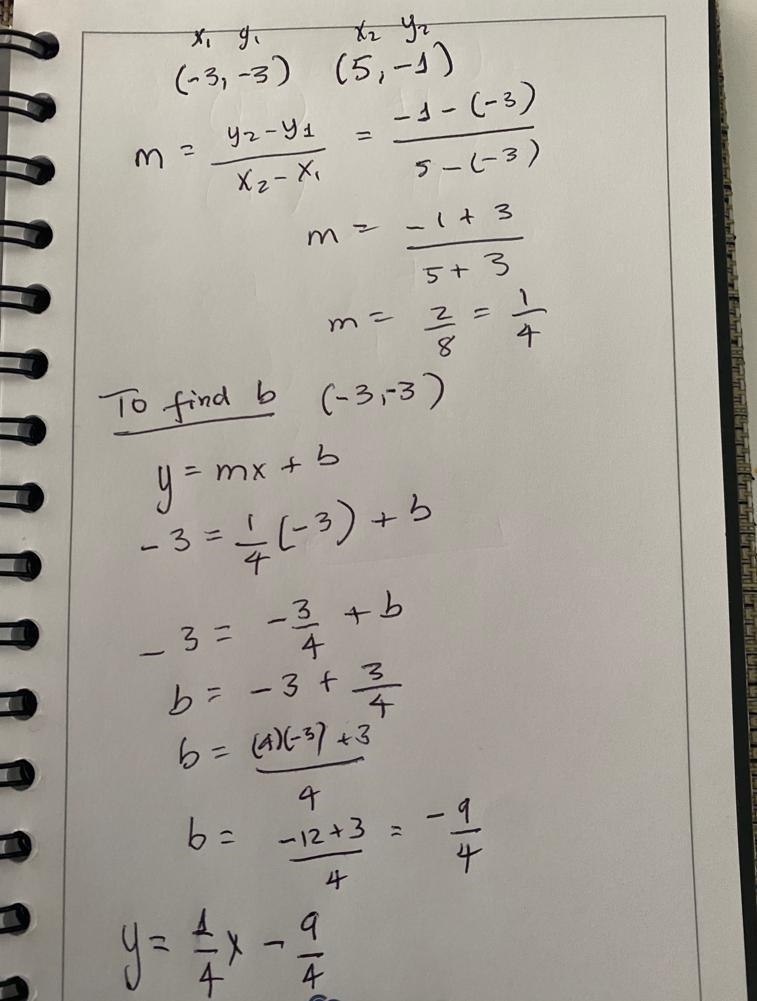 x₁ y₁ x₂ y₂
(-3, -3) (5, -1)
m = (y₂ - y₁)/(x₂ - x₁) = (-1 - (-3))/(5 - (-3))
m = (-1 + 3)/(5 + 3)
m = 2/8 = 1/4
To find b (-3, -3)
y = mx + b
-3 = 1/4 (-3) + b
-3 = -3/4 + b
b = -3 + 3/4
b = ((4)(-3) + 3)/4
b = (-12 + 3)/4 = -9/4
y = 1/4 x - 9/4